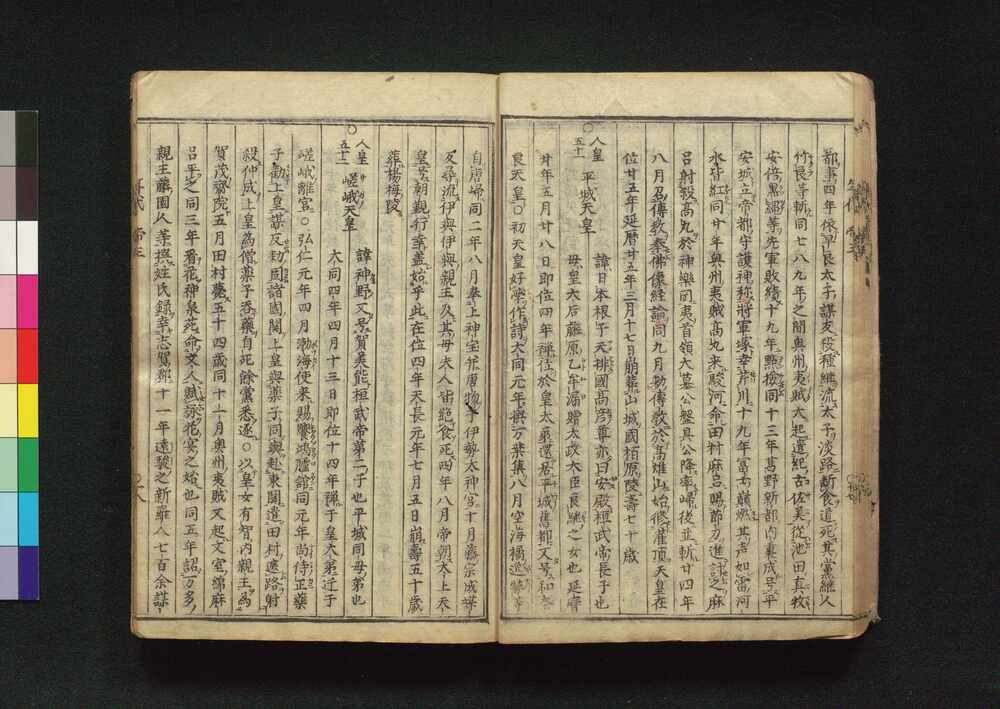 都事四年依早良太子謀反役種継流太子淡路断食道死其黨継人
竹良等斬同七八九年之間奥州夷賊大起遣紀古佐美從池田真牧
安倍黒縄等先軍敗績十九年點檢同十三年葛野新都内裏成号平
安城立帝都守護神称將軍塚幸芹川十九年富士嶺燃其声如雷河
水皆紅同廿年奥州夷賊高丸来駿河命田村麻呂賜節刀進討之麻
呂射殺高丸於神樂岡夷首領大墓公盤具公降率帰後並斬廿四年
八月召傳教奉佛像経論同九月勅傳教於高雄山始修灌頂天皇在
位廿五年延暦廿五年三月十七日崩葬山城國柏原陵壽七十歳
○人皇五十一 平城天皇
諱日本根子天排國高彦尊亦曰安殿桓武帝長子也
母皇太后藤原乙牟漏贈太政大臣良継之女也延暦
廿年五月廿八日即位四年禅位於皇太弟還居平城舊都又号和
良天皇○初天皇好學作詩大同元年撰万葉集八月空海橘逸勢等
自唐帰同二年八月奉上神宝并唐物于伊勢太神宮十月藤宗成謀
反尋流伊與伊與親王及其母夫人皆絶食死四年八月帝朝太上天
皇安朝覲行幸蓋始乎此在位四年天長元年七月五日崩壽五十歳
葬楊梅陵
○人皇五十二 嵯峨天皇
諱神野又曰賀美能桓武帝第二子也平城同母弟也
大同四年四月十三日即位十四年禅于皇太弟迁于
嵯峨離宮○弘仁元年四月渤海使来賜饗鴻臚館同元年尚侍正藥
子勸上皇謀反勅固諸國関上皇與藥子同輿赴東関遣田村遮路射
殺仲成上皇為僧藥子呑藥自死餘黨悉逐○以皇女有智内親王為
賀茂齋院五月田村薨五十四歳同十一月奥州夷賊又起文室綿麻
呂平之同三年看花神泉苑命文人賦詠花宴之始也同五年詔万多
親王藤園人等撰姓氏録幸志賀郡十一年遠駿之新羅人七百余謀